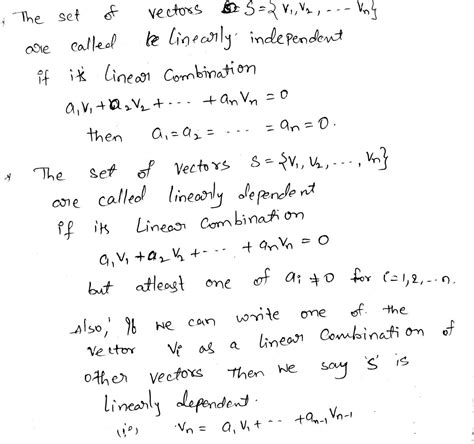 * The set of vectors S = { V₁, V₂, - - - Vₙ}
are called linearly independent
if its Linear Combination
a₁V₁ + a₂V₂ + - - - + aₙVₙ = 0
then a₁ = a₂ = - - - - = aₙ = 0.
* The set of vectors S = {V₁, V₂, - - -, Vₙ}
are called linearly dependent
if its Linear Combination
a₁V₁ + a₂V₂ + - - - + aₙVₙ = 0
but atleast one of aᵢ ≠ 0 for i=1,2,...n.
Also, If we can write one of the
vector Vᵢ as a linear Combination of
other vectors then we say 'S' is
linearly dependent.
Vₙ = a₁V₁ + - - - + aₙ₋₁Vₙ₋₁